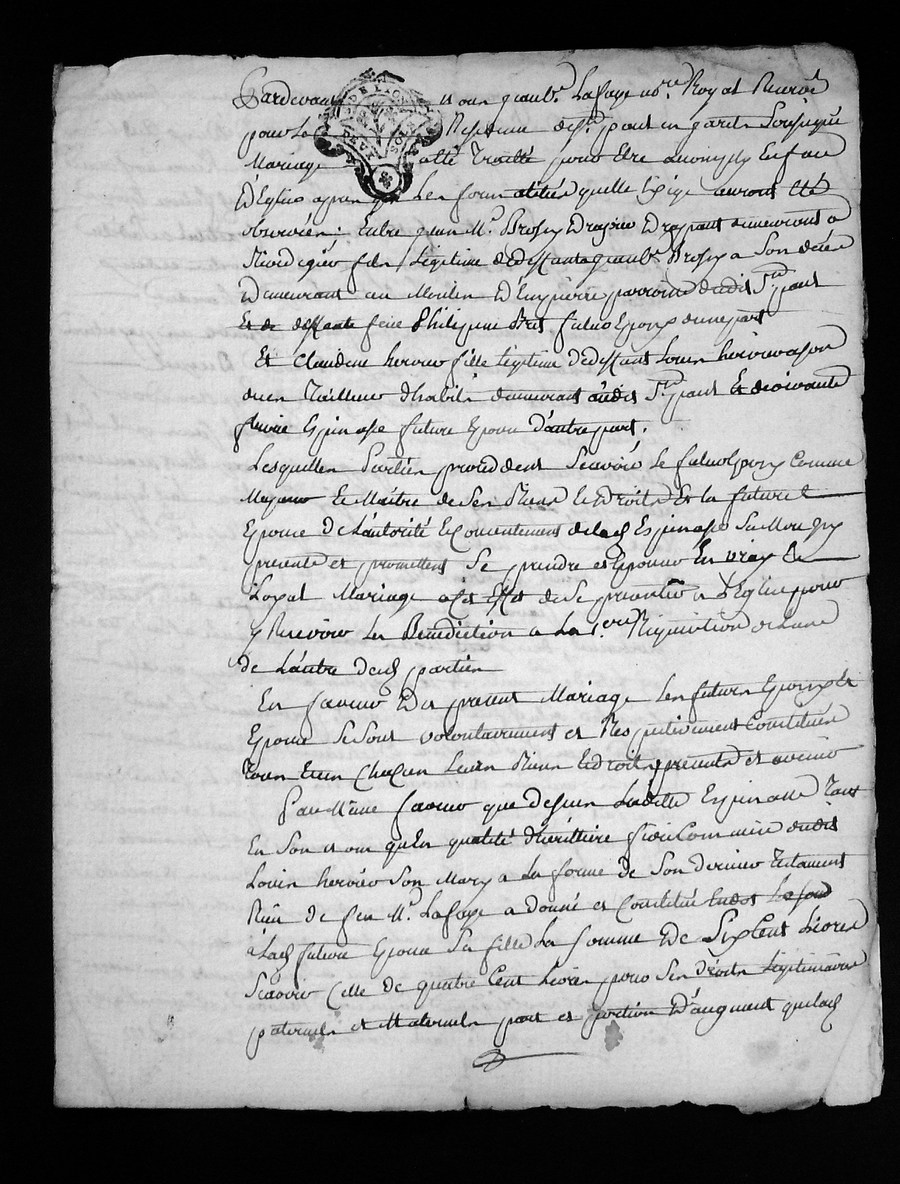 Pardevant nous Jean B.te Lafaye no.re Royal Reservé
pour la Residence de st paul en garets soussigné
Mariage a été Traité pour être accomply En face
d'Eglise apres que Les formalitées quelle Exige auront Eté
observées. Entre Jean M.
fils Legitime de deffunt Jean B.te Brossy a son décès
demeurant au Moulin d'Empierre parroisse dudit St paul
Et de deffunte future Epoux d'une part
Et Claudine hervier fille Legitime de deffunt Louis hervier a son
deces Tailleur d'habits demeurant audit St paul Et de vivante
fleurie Espinasse future Epouse d'autre part.
Lesquelles Parties proceddent Scavoir Le futur Epoux Comme
Majeur Et Maitre de ses Biens Et Droits Et la future
Epouse de L'autorité Et Consentement de lad Espinasse sa Mere icy
presente et promettent Se prendre et Epouser En vray Et
Loyal Mariage a Cet Effet de Se presenter a L'Eglise pour
y Recevoir La Benediction a La 1.ere Requisition de L'une
de L'autre desd parties
En faveur de ce present Mariage Les futurs Epoux et
Epouse Se Sont volontairement et Respectivement Constitués
Tous Et un Chacun Leurs Biens Et droits presents et avenir
Par Même faveur que dessus Ladite Espinasse Tant
En Son nom qu'En qualité d'héritiere fideiCommise dudit
Louis hervier Son Mary a La forme de Son dernier Testament
Reçu de feu M.e Lafaye a donné et Constitué
à Lad future Epouse Sa fille La Somme de Six Cent Livres
Scavoir Celle de quatre Cent Livres pour Ses droits Legitimaires
paternels et Maternels part et portion d'augment quelad